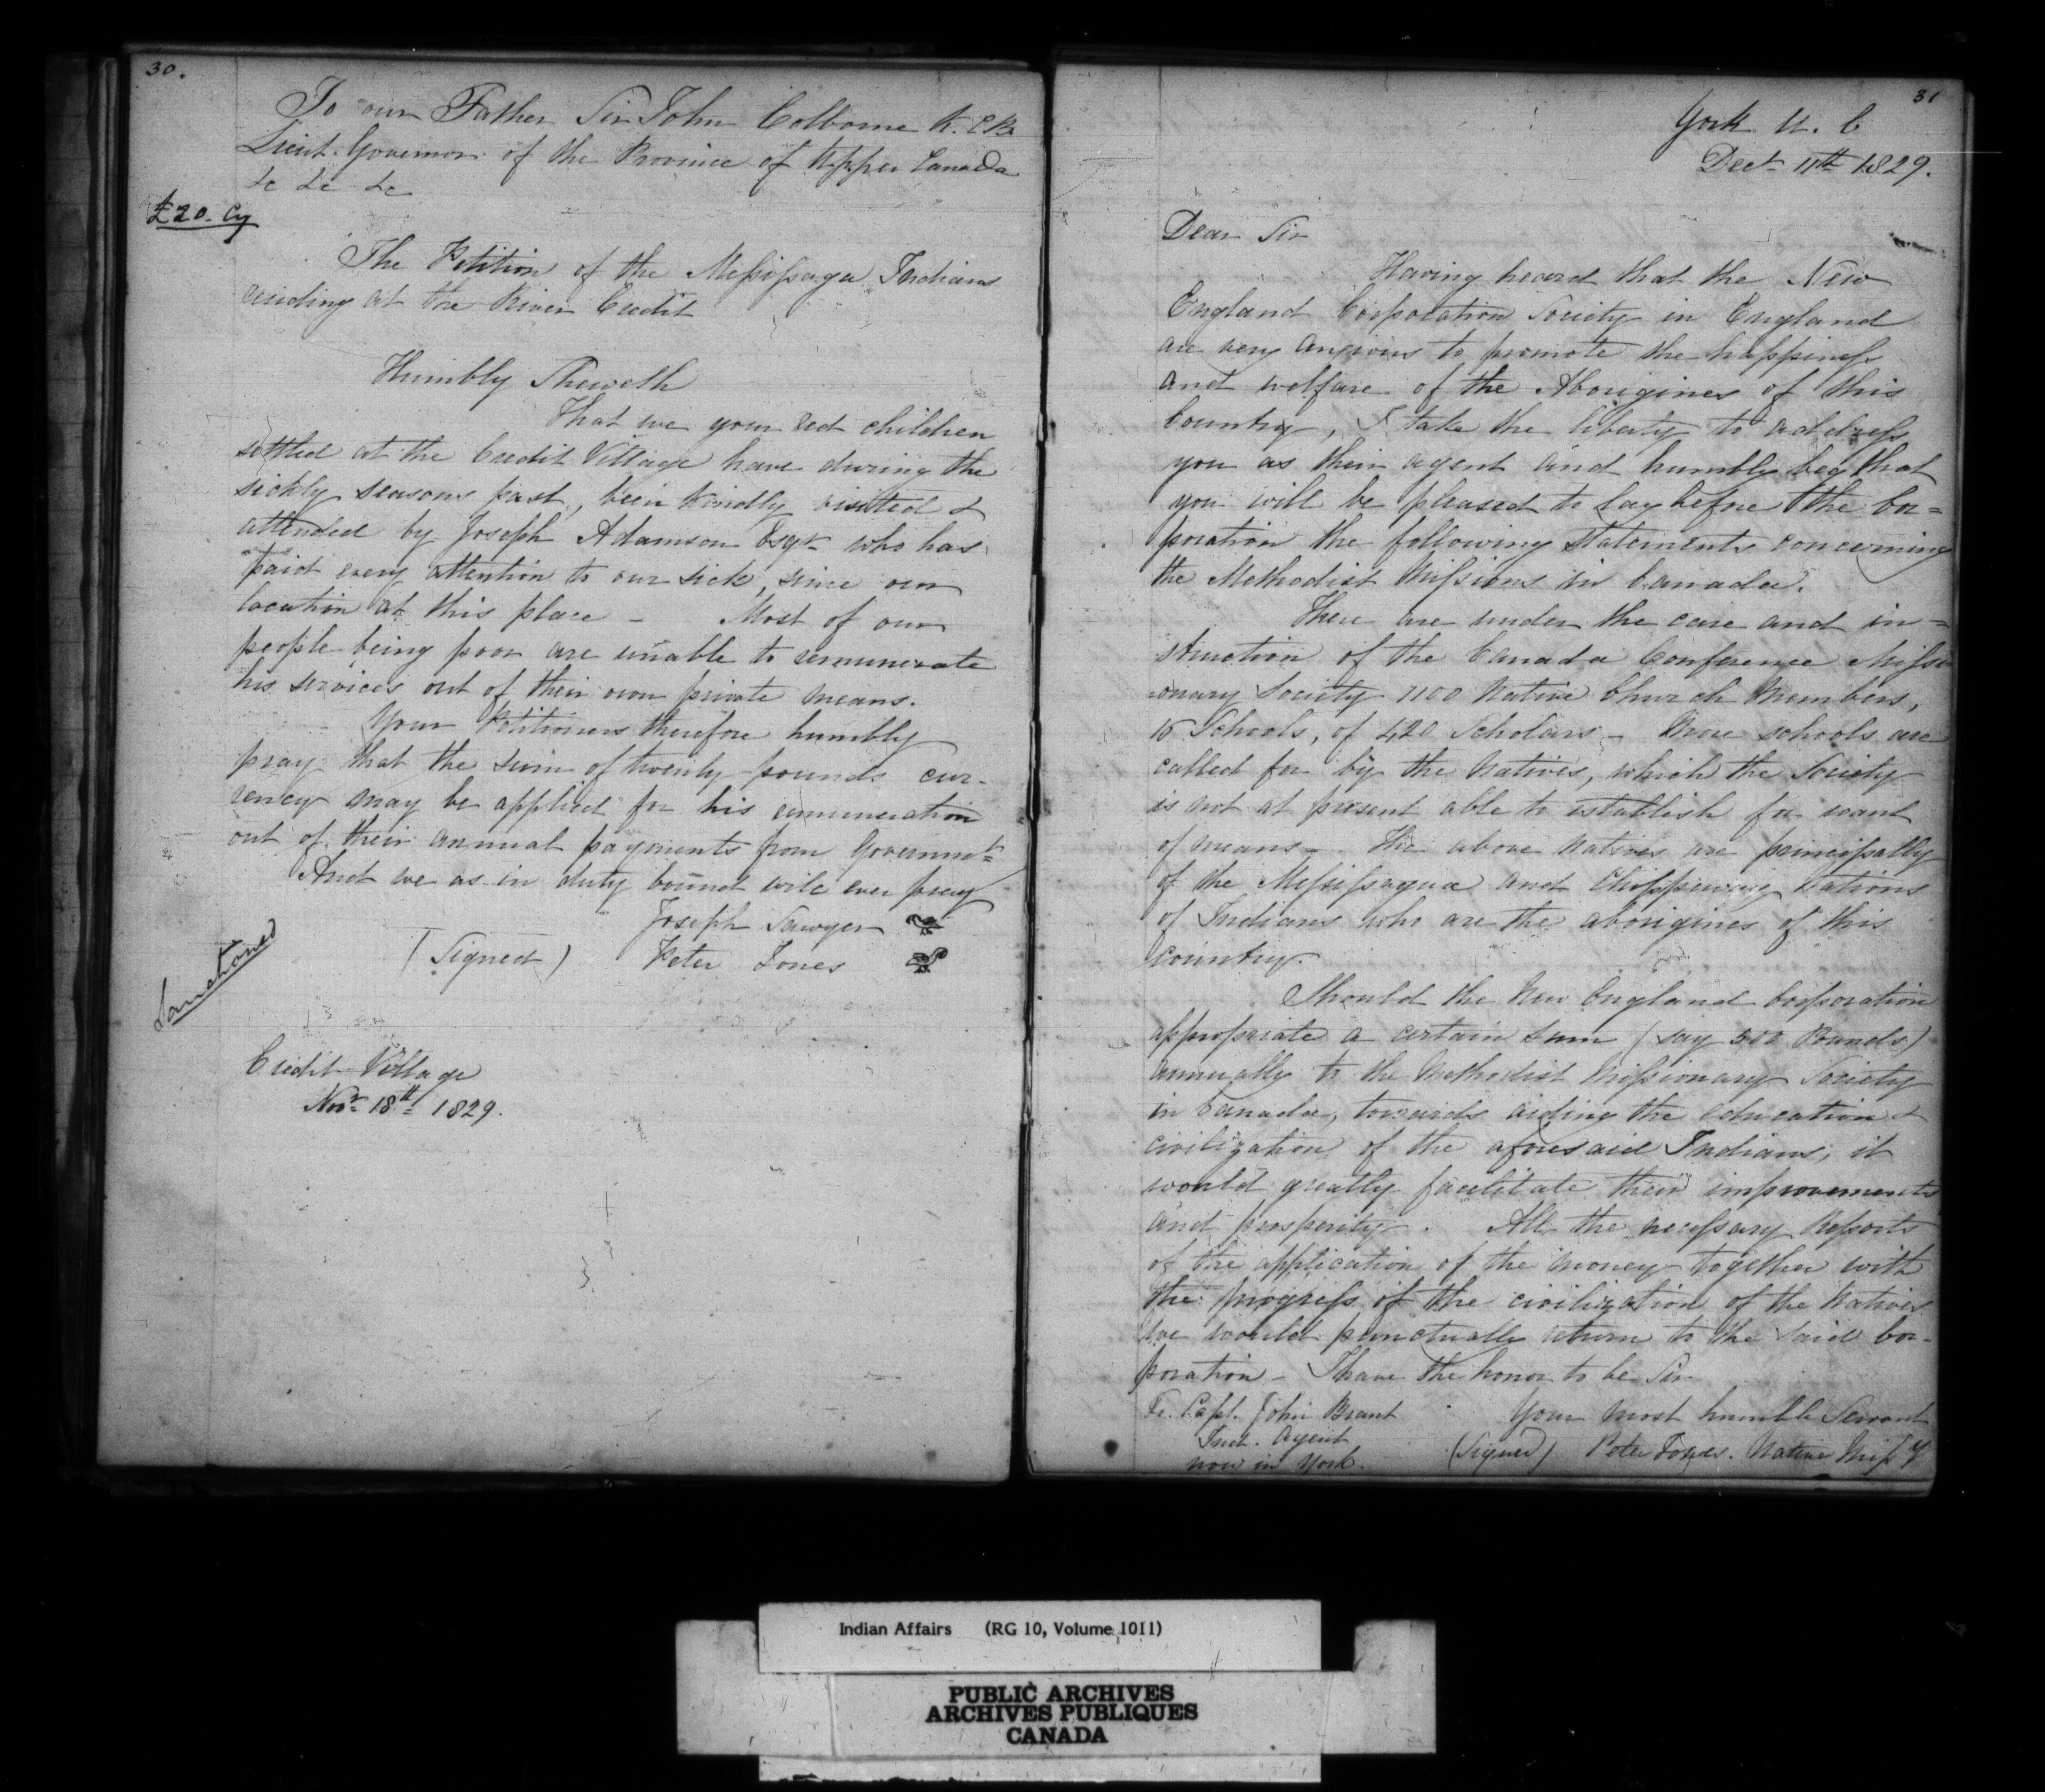 30.
To our Father Sir John Colborne K.C.B.
Lieut. Governor of the Province of Upper Canada
&c &c &c
£20. Cy
The Petition of the Messissaga Indians
residing at the River Credit
Humbly Sheweth
That we your red children
settled at the Credit Village have during the
sickly seasons past, been kindly visited &
attended by Joseph Adamson Esqr who has
paid every attention to our sick, since our
location at this place - Most of our
people being poor are unable to remunerate
his services out of their own private means.
Your Petitioners therefore humbly
pray that the sum of twenty pounds cur-
rency may be applied for his remuneration
out of their annual payments from Governmt
And we as in duty bound will ever pray
Joseph Sawyer
(Signed) Peter Jones
Sanctioned
Credit Village
Novr 18th 1829.
31
York U. C
Decr 11th 1829.
Dear Sir
Having heard that the New
England Corporation Society in England
are very anxious to promote the happiness
and welfare of the Aborigines of this
Country, I take the liberty to address
you as their agent and humbly beg that
you will be pleased to lay before the Cor=
poration the following statements concerning
the Methodist Missions in Canada.
There are under the care and in=
struction of the Canada Conference Missi
=onary Society 1100 Native Church Members,
Schools, of 420 Scholars - More schools are
called for by the Natives, which the Society
is not at present able to establish for want
of means - The above Natives are principally
of the Messissagua and Chippeway nations
of Indians who are the aborigines of this
country.
Should the New England Corporation
appropriate a certain sum (say 500 Pounds)
annually to the Methodist Missionary Society
in Canada, towards aiding the education &
civilization of the aforesaid Indians, it
would greatly facilitate their improvements
and prosperity. All the necessary Reports
of the application of the money together with
the progress of the civilization of the Natives
we would punctually return to the said Cor-
poration - I have the honor to be Sir
To. Capt. John Brant Your most humble Servant
Ind. Agent (Signed) Peter Jones. Native Missy
now in York.
Indian Affairs (RG 10, Volume 1011)
PUBLIC ARCHIVES
ARCHIVES PUBLIQUES
CANADA